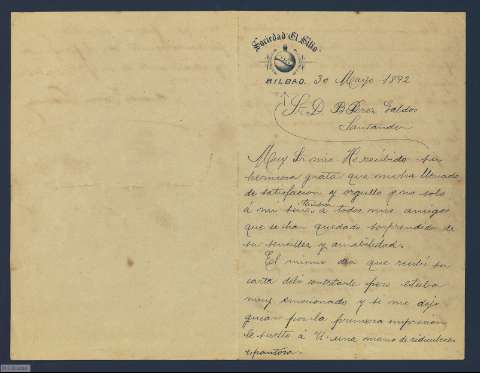 Sociedad "El Sitio"
BILBAO. 30 Mayo 1892
Sr. D. B. Perez Galdos
Santander
Muy Sr mio He recibido su
hermosa grata que me ha llenado
de satisfacion y orgullo pero solo
á mi sino tambien á todos mis amigos
que se han quedado sorprendidos de
su sencillez y amabilidad.
El mismo dia que recibí su
carta debí contestarle pero estaba
muy emocionado y si me dejo
guiar por la primera impresion
le suelto á V. una mano de
espantosa.